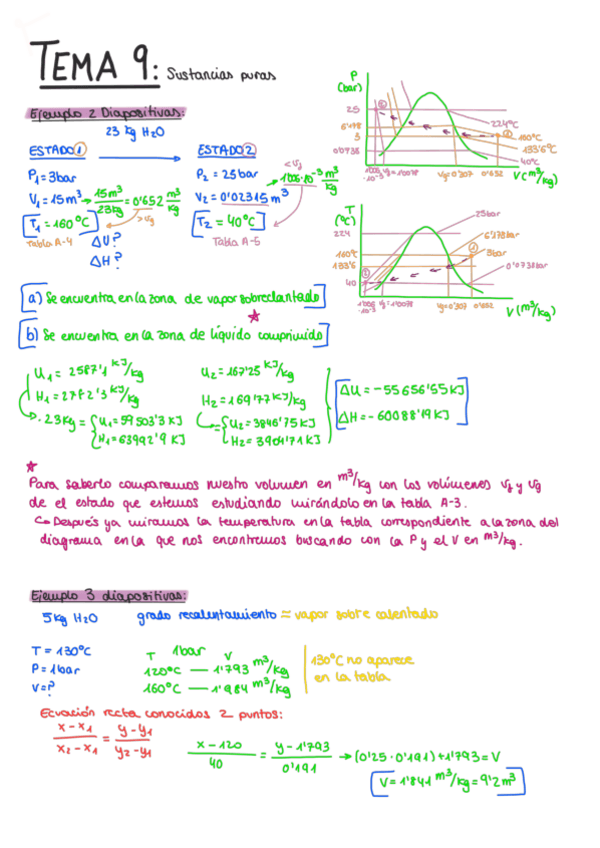 TEMA 9: Sustancias puras
Ejemplo 2 Diapositivas:
23 kg H₂O
ESTADO 1 → ESTADO 2
P₁ = 3bar
V₁ = 15m³ → 15m³/23kg = 0'652 m³/kg
T₁ = 160°C
> vg
Tabla A-4
ΔU?
ΔH?
P₂ = 25bar
V₂ = 0'02315 m³
< vf
1006·10⁻³ m³/kg
T₂ = 40°C
Tabla A-5
P
(bar)
25
6'178
3
0'0738
224°C
160°C
133'6°C
40°C
Vg=0'307
0'652
V(m³/kg)
T
(°C)
224
160°C
133'6
40
25bar
6'178bar
3bar
0'0738bar
Vg=0'307
0'652
V(m³/kg)
a) Se encuentra en la zona de vapor sobreclantado
b) Se encuentra en la zona de líquido comprimido
U₁ = 2587'1 KJ/kg
H₁ = 2782'3 KJ/kg
· 23Kg = U₁ = 59503'3 KJ
H₁ = 63992'9 KJ
U₂ = 167'25 KJ/kg
H₂ = 169'77 KJ/kg
U₂ = 3846'75 KJ
H₂ = 3904'71 KJ
ΔU = -55656'55 KJ
ΔH = -60088'19 KJ
Para saberlo comparamos nuestro volumen en m³/kg con los volúmenes vf y vg
de el estado que estemos estudiando mirándolo en la tabla A-3.
Después ya miramos la temperatura en la tabla correspondiente a la zona del
diagrama en la que nos encontremos buscando con la P y el V en m³/kg.
Ejemplo 3 diapositivas:
5kg H₂O grado recalentamiento = vapor sobre calentado
T = 130°C
P = 1bar
V = ?
T 1bar V
120°C — 1'793 m³/kg
160°C — 1'984 m³/kg
130°C no aparece
en la tabla
Ecuación recta conocidos 2 puntos:
x-x₁/x₂-x₁ = y-y₁/y₂-y₁
x-120/40 = y-1'793/0'191 → (0'25·0'191)+1'793 = V
V = 1'841 m³/kg = 9'2m³